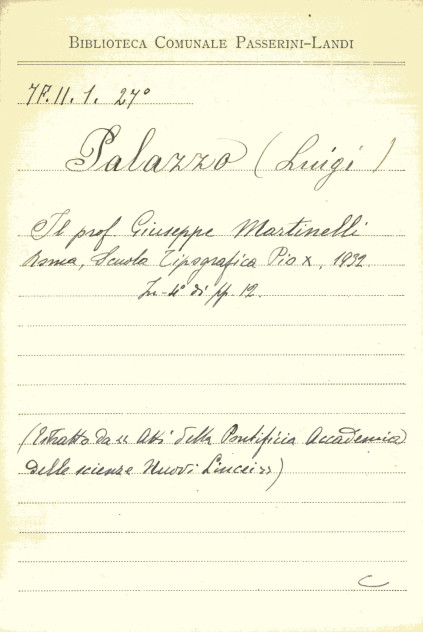 BIBLIOTECA COMUNALE PASSERINI-LANDI
7F.II.1. 27°
Palazzo (Luigi)
Il prof. Giuseppe Martinelli
Roma, Scuola Tipografica Pio X, 1932.
In-4° di pp. 12.
(Estratto da "Atti della Pontificia Accademica
delle scienze Nuovi Lincei")
C